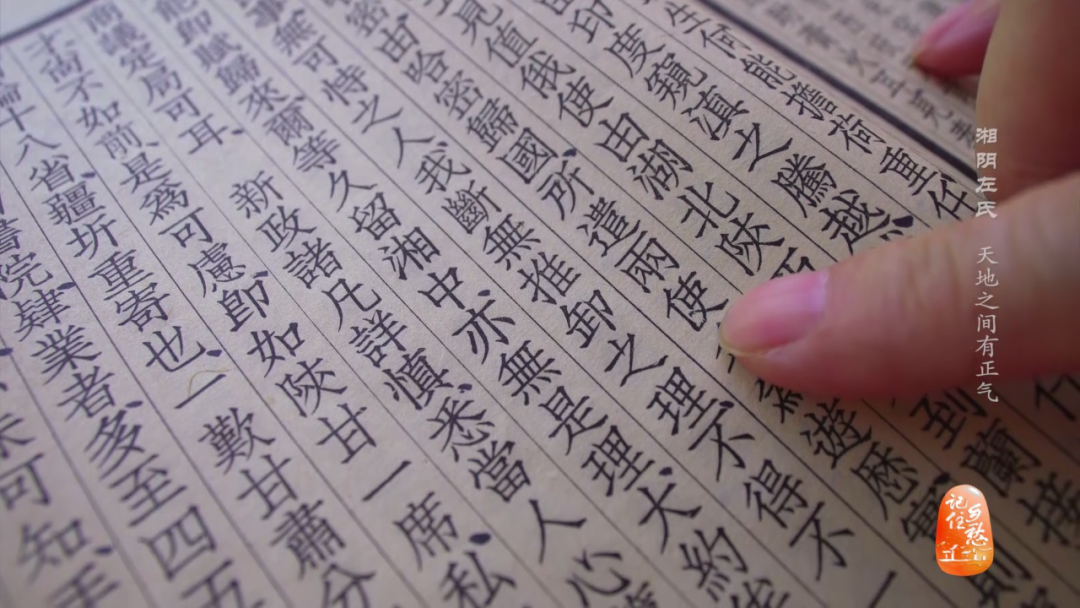 生何能擔荷重任
印度窺滇之騰越、
見值俄使由湖北陝 到蘭接
密由哈密歸國、所遣兩使 遊歷
事無可恃之人、我斷無推卸之理、不得不一
能即賦歸來、爾等久留湘中、亦無是理、大約
商議定局可耳、 新政諸凡詳慎、悉當人心
才尚不如前、是為可慮、即如陝甘一席、私
十八省疆圻重寄也、一歎甘肅分
書院肄業者、多至四五
可知、手
湘阴左氏 天地之间有正气
记住乡愁